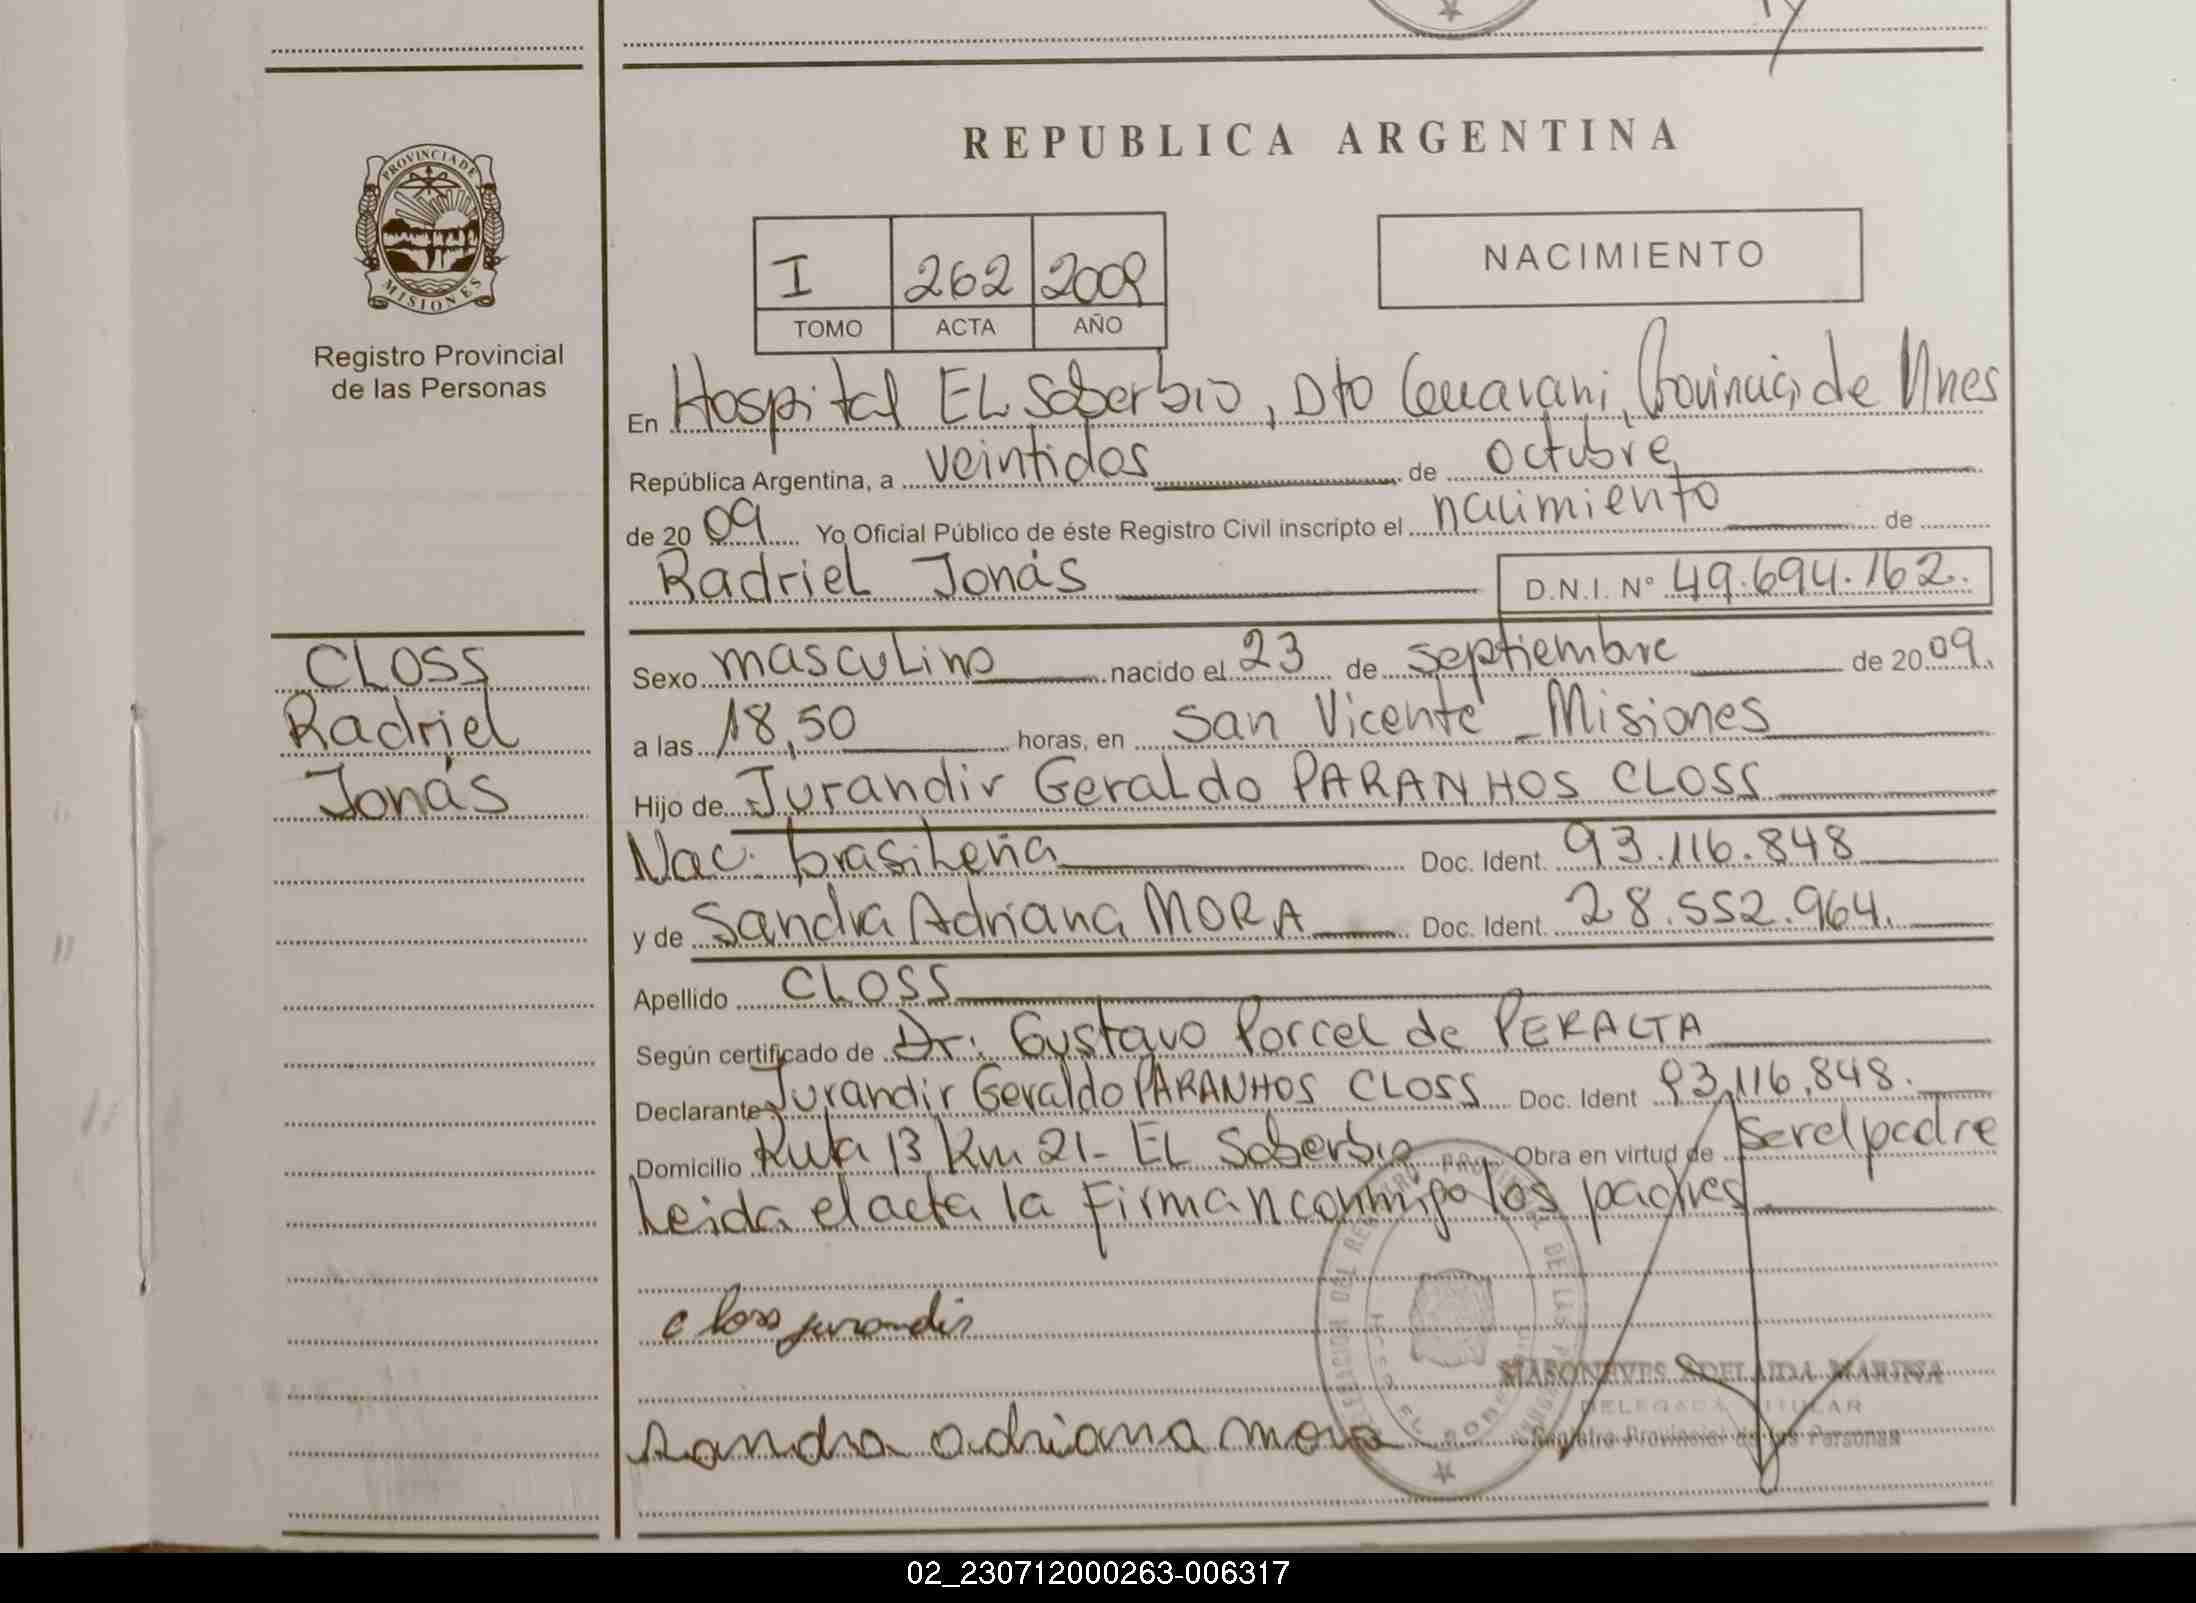 REPUBLICA ARGENTINA
PROVINCIA DE
MISIONES
Registro Provincial
de las Personas
I 262 2009
TOMO ACTA AÑO
NACIMIENTO
En Hospital EL Soberbio, Dto Guarani, Provincia de Mnes
República Argentina, a veintidos de octubre
de 2009 Yo Oficial Público de éste Registro Civil inscripto el nacimiento de
Radriel Jonás D.N.I. Nº 49.694.162.
CLOSS
Radriel
Jonás
Sexo masculino nacido el 23 de septiembre de 2009.
a las 18,50 horas, en San Vicente - Misiones
Hijo de Jurandir Geraldo PARANHOS CLOSS
Nac. brasileña Doc. Ident. 93.116.848
y de Sandra Adriana MORA Doc. Ident. 28.552.964.
Apellido CLOSS
Según certificado de Dr. Gustavo Porcel de PERALTA
Declarante Jurandir Geraldo PARANHOS CLOSS Doc. Ident 93.116.848.
Domicilio Ruta 13 Km 21- EL Soberbio Obra en virtud de ser el padre
Leida el acta la firman conmigo los padres
closs jurandir
MASONEVES ADELAIDA MARINA
DELEGADA TITULAR
Registro Provincial de las Personas
sandra adriana mora
02_230712000263-006317